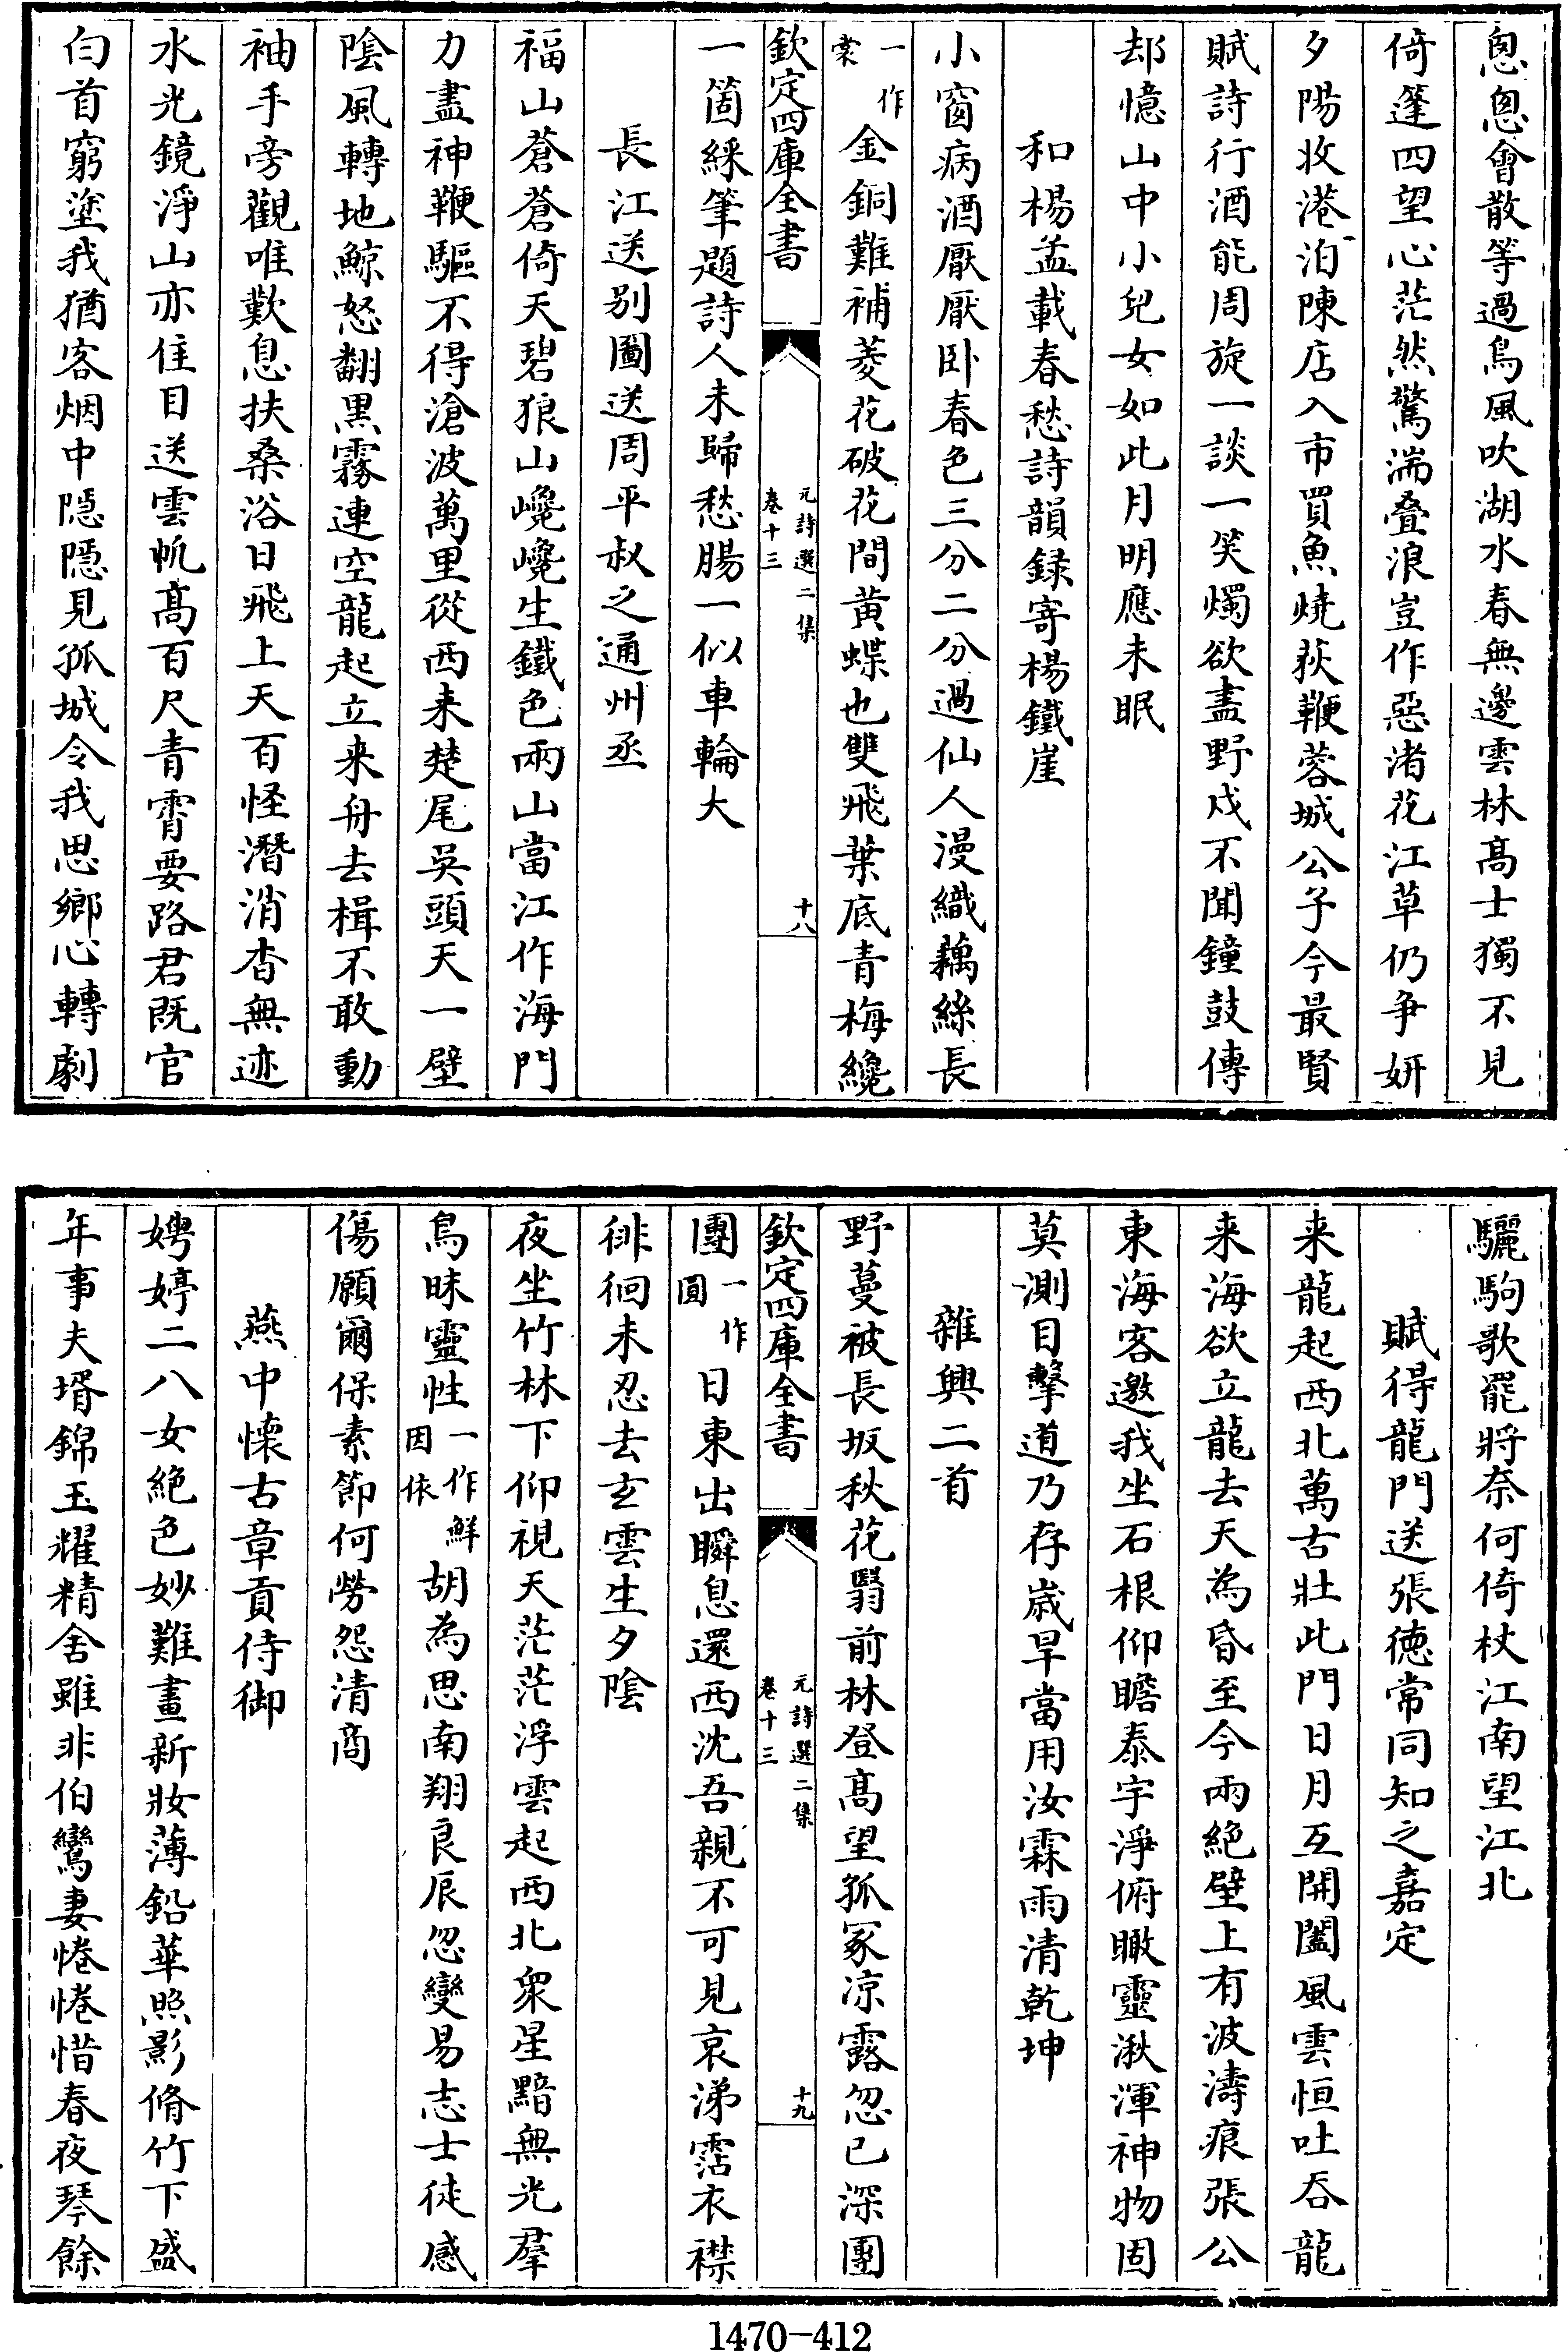 匆匆會散等過鳥風吹湖水春無邊雲林髙士獨不見
倚篷四望心茫然驚湍疊浪豈作惡渚花江草仍爭妍
夕陽收港泊陳店入市買魚燒荻鞭蓉城公子今最賢
賦詩行酒能周旋一談一笑燭欲盡野戍不聞鐘鼓傳
却憶山中小兒女如此月明應未眠
和楊孟載春愁詩韻録寄楊鐵崖
小窗病酒厭厭卧春色三分二分過仙人漫織藕絲長
一作裳
金銅難補菱花破花間黄蝶也雙飛葉底青梅纔
欽定四庫全書
元詩選二集
卷十三
十八
一箇綵筆題詩人未歸愁腸一似車輪大
長江送别圖送周平叔之通州丞
福山蒼蒼倚天碧狼山巉巉生鐵色兩山當江作海門
力盡神鞭驅不得滄波萬里從西来楚尾吳頭天一壁
陰風轉地鯨怒翻黒霧連空龍起立来舟去楫不敢動
袖手旁觀唯歎息扶桑浴日飛上天百怪潛消杳無迹
水光鏡淨山亦住目送雲帆髙百尺青霄要路君既官
白首窮塗我猶客烟中隱隱見孤城令我思鄉心轉劇
驪駒歌罷將奈何倚杖江南望江北
賦得龍門送張徳常同知之嘉定
来龍起西北萬古壯此門日月互開闔風雲恒吐吞龍
来海欲立龍去天為昏至今兩絶壁上有波濤痕張公
東海客邀我坐石根仰瞻泰宇淨俯瞰靈湫渾神物固
莫測目擊道乃存歳旱當用汝霖雨清乾坤
雜興二首
野蔓被長坂秋花翳前林登髙望孤冢凉露忽已深團
欽定四庫全書
元詩選二集
卷十三
十九
團一作圓日東出瞬息還西沈吾親不可見哀涕霑衣襟
徘徊未忍去玄雲生夕陰
夜坐竹林下仰視天茫茫浮雲起西北衆星黯無光羣
鳥昧靈性一作鮮因依胡為思南翔良辰忽變易志士徒感
傷願爾保素節何勞怨清商
燕中懐古章貢侍御
娉婷二八女絶色妙難畫新妝薄鉛華照影脩竹下盛
年事夫壻錦玉耀精舍雖非伯鸞妻惓惓惜春夜琴餘
1470-412